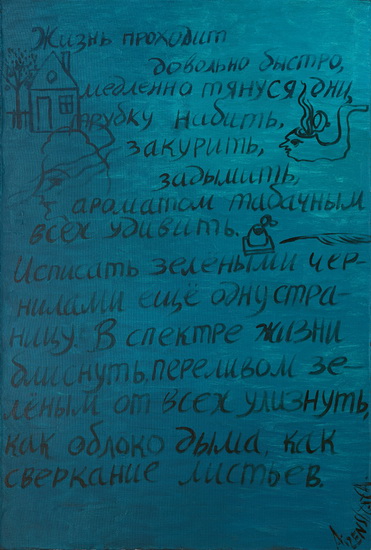 Жизнь проходит
довольно быстро,
медленно тянуся дни,
трубку набить,
закурить,
задымить,
ароматом табачным
всех удивить.
Исписать зелеными чер-
нилами ещё одну стра-
ницу. В спектре жизни
блиснуть, переливом зе-
лёным от всех улизнуть,
как облоко дыма, как
сверкание листьев.